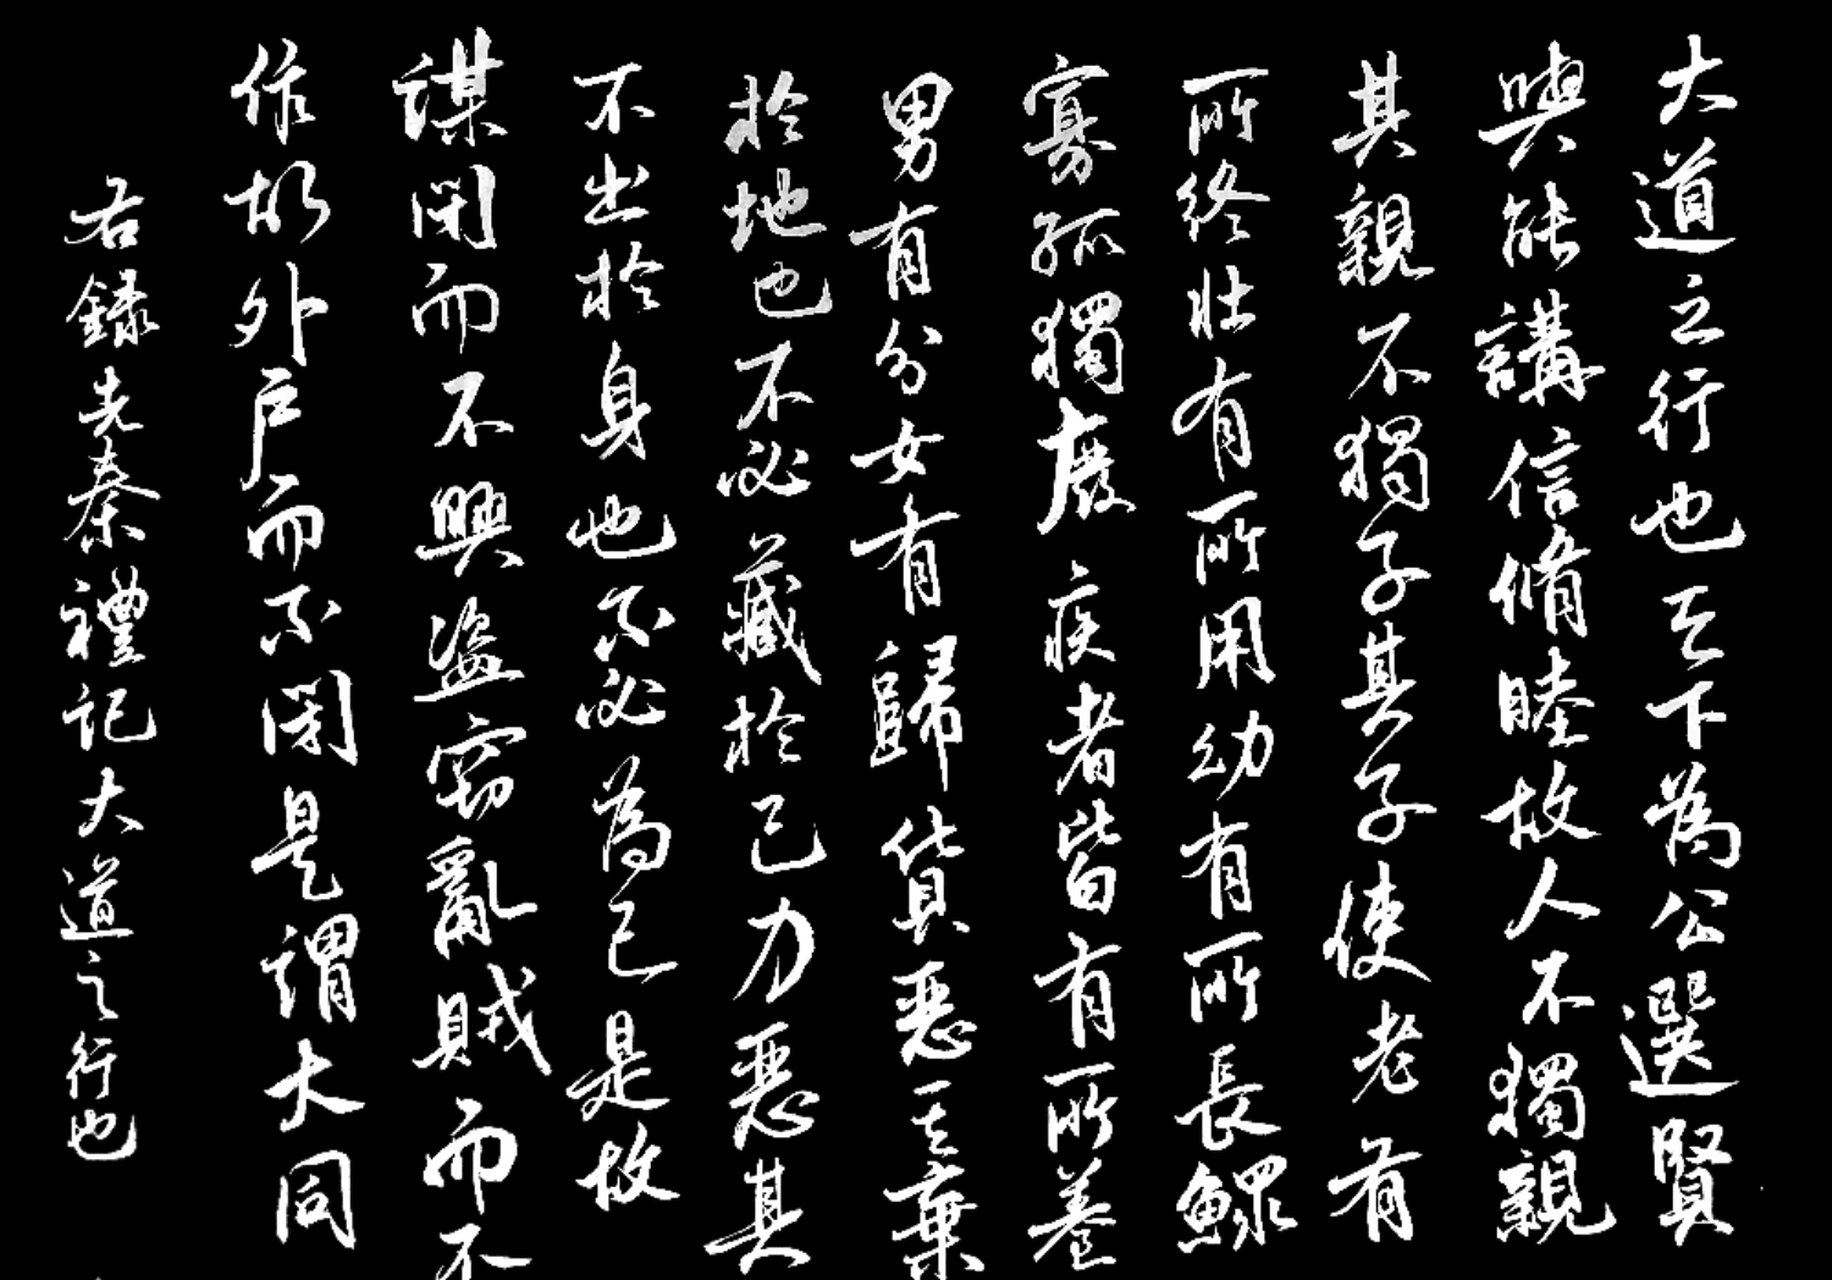 大道之行也天下為公選賢
與能講信脩睦故人不獨親
其親不獨子其子使老有
所終壯有所用幼有所長鰥
寡孤獨廢疾者皆有所養
男有分女有歸貨惡其棄
於地也不必藏於己力惡其
不出於身也不必為己是故
謀閉而不興盜竊亂賊而不
作故外戶而不閉是謂大同
右錄先秦禮記大道之行也